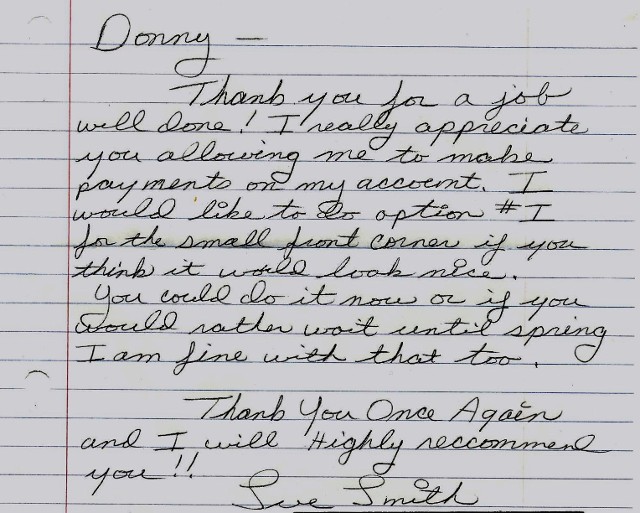 Donny —
Thank you for a job
well done! I really appreciate
you allowing me to make
payments on my account. I
would like to do option #I
for the small front corner if you
think it would look nice.
You could do it now or if you
would rather wait until spring
I am fine with that too.
Thank You Once Again
and I will Highly reccommend
you!!
Sue Smith